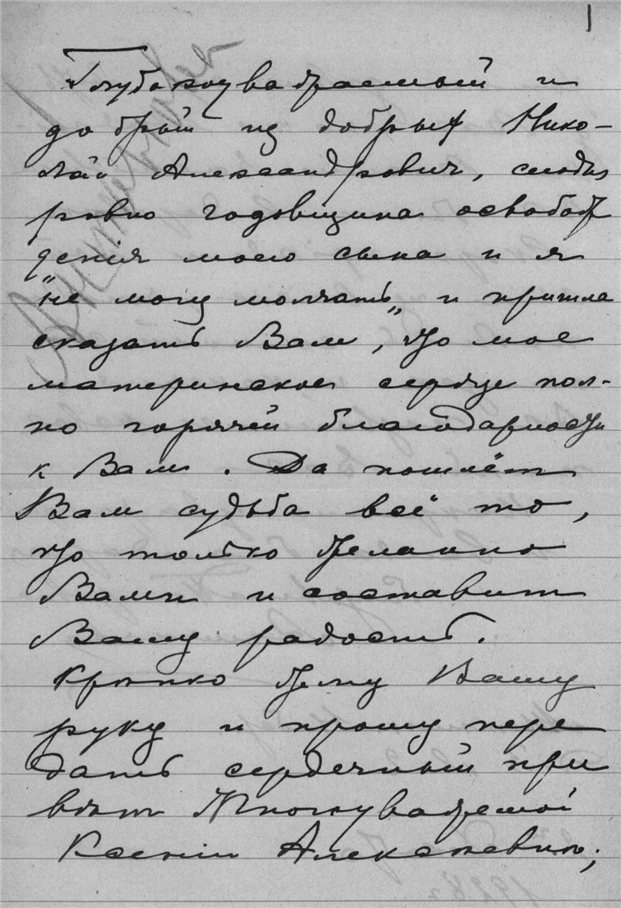 1
Глубокоуважаемый и
добрый из добрых Нико-
лай Александрович, сегодня
ровно годовщина освобож
денія моего сына и я
"не могу молчать" и пришла
сказать Вам, что мое
материнское сердце пол-
но горячей благодарности
к Вам. Да пошлёт
Вам судьба всё то,
что только желанно
Вами и составит
Вашу радость.
Крѣпко жму Вашу
руку и прошу пере
дать сердечный при
вѣт Многоуважаемой
Ксеніи Алексѣевнѣ;